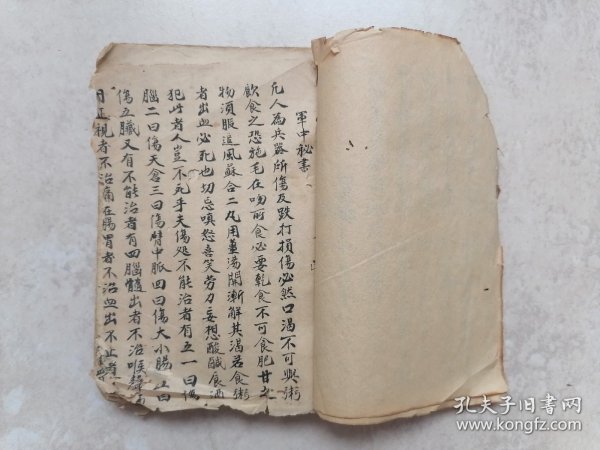 軍中秘書
凡人為兵器所傷及跌打損傷必然口渴不可與粥
飲食之恐施毛在吻所食必要乾食不可食肥甘之
物須服追風蘇合二丸用薑湯開漸解其渴若食粥
者出血必死也切忌嗔怒喜笑劳力妄想酸鹹食酒
犯此者人豈不死乎夫傷処不能治者有五一曰傷
腦二曰傷天倉三曰傷臂中脈四曰傷大小腸五曰
傷五臟又有不能治者有四腦髓出者不治喉
正視者不治痛在腸胃者不治血出不止者
孔夫子旧书网
www.kongfz.com